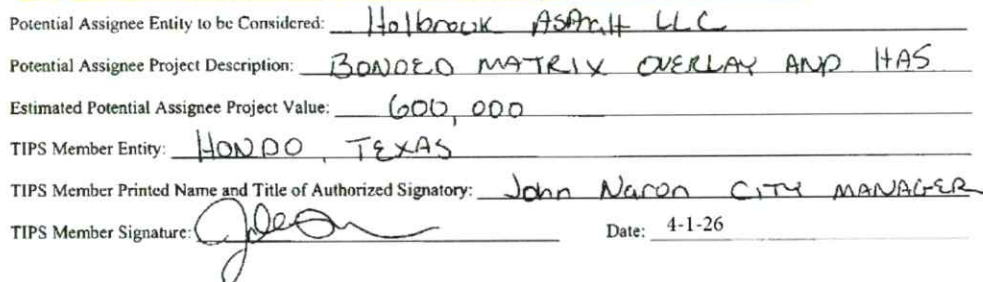 Potential Assignee Entity to be Considered: Holbrook ASPhalt LLC
Potential Assignee Project Description: BONDED MATRIX OVERLAY AND HAS
Estimated Potential Assignee Project Value: 600,000
TIPS Member Entity: HONDO, TEXAS
TIPS Member Printed Name and Title of Authorized Signatory: John Naron CITY MANAGER
TIPS Member Signature: Date: 4-1-26